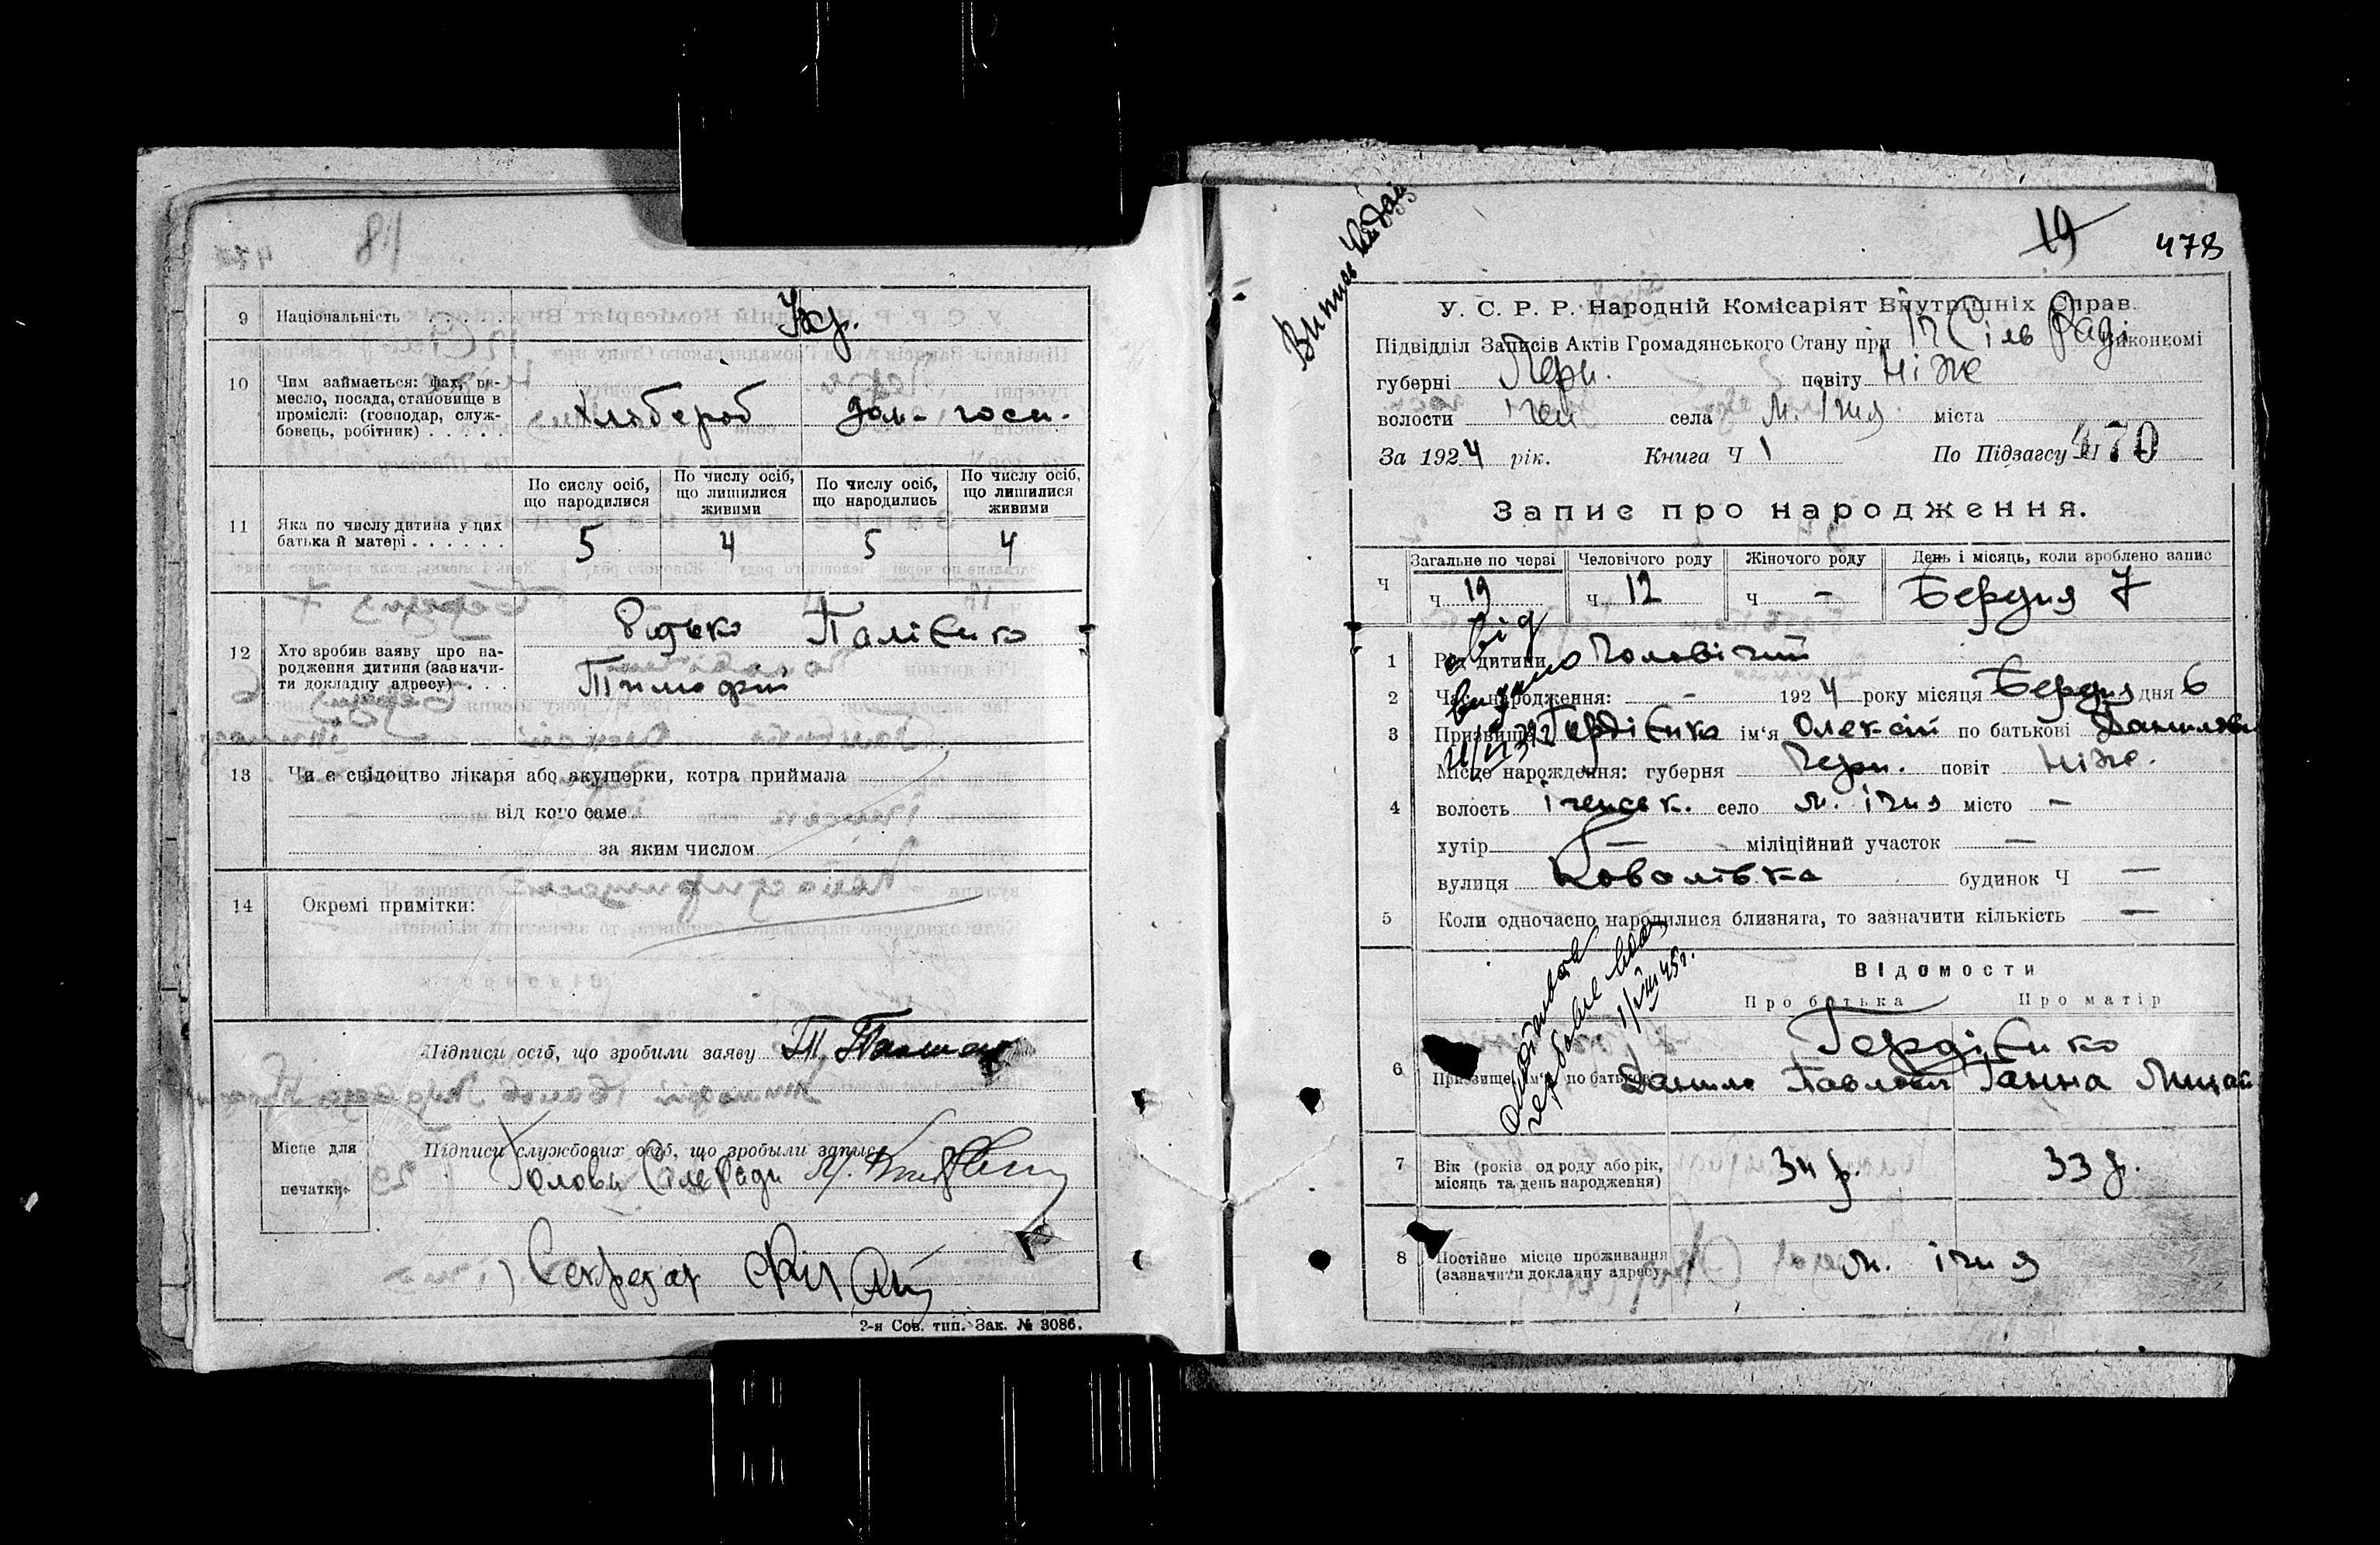 9 Національність . . . . . Ук.
10 Чим займається: фах, ре-
месло, посада, становище в
проміслі: (господар, служ-
бовець, робітник) . . . . . Хлібороб дом-госп.
По сислу осіб, що народилися
По числу осіб, що лишилися живими
По числу осіб, що народились
По числу осіб, що лишилися живими
11 Яка по числу дитина у цих
батька й матері . . . . . . 5 4 5 4
12 Хто зробив заяву про на-
родження дитини (зазначи-
ти докладну адресу) . . . Палієнко
Тимофій
13 Чи є свідоцтво лікаря або акушерки, котра приймала
від кого саме
за яким числом
14 Окремі примітки:
Підписи осіб, що зробили заяву
Місце для
печатки
Підписи службових осіб, що зробыли запис
Голова СільРади
Секретар
2-я Сов. тип. Зак. № 3086.
19
478
У. С. Р. Р. Народній Комісаріят Внутрішніх Справ.
Підвідділ Записів Актів Громадянського Стану при Іч Сіль Раді Виконкомі
губерні Черн. повіту Ніже
волости Ічен села м. Ічня міста
За 1924 рік. Книга Ч 1 По Підзагсу Ч 470
Запис про народження.
Ч Загальне по черзі Человічого роду Жіночого роду День і місяць, коли зроблено запис
Ч 19 Ч 12 Ч — Березня 7
1 Рід дитини Чоловічий
2 Час народження: - 1924 року місяця Березня дня 6
3 Призвище Гордієнко ім'я Олексій по батькові Данилови
Місце нарождення: губерня Черн. повіт Ніже.
4 волость Іченськ. село м. Ічня місто —
хутір — міліційний участок —
вулиця Ковалівка будинок Ч —
5 Коли одночасно народилися близнята, то зазначити кількість —
Відомости
Про батька Про матір
Гордієнко
6 Призвище, ім'я, по батькові Данило Павлович Ганна
7 Вік (років од роду або рік,
місяць та день народження) 34 р. 33 р.
8 Постійне місце проживання
(зазначити докладну адресу) м. Ічня